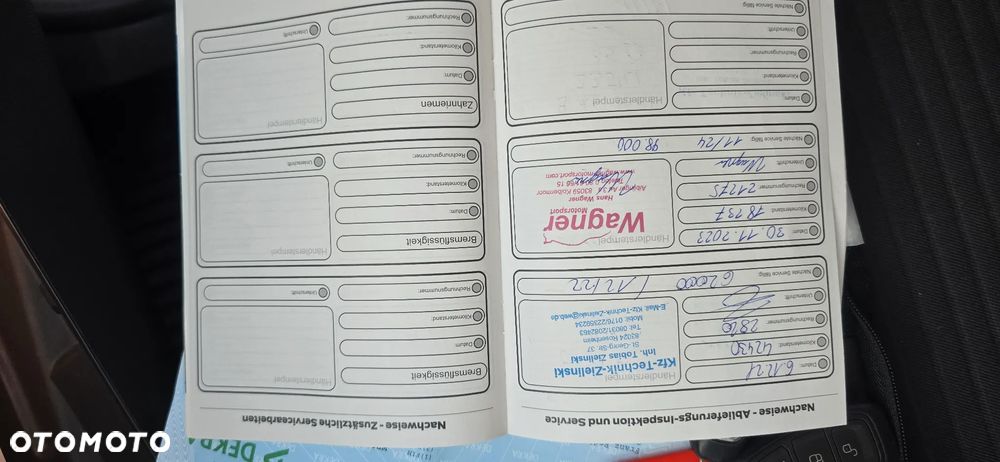 Nachweise - Ablieferungs-Inspektion und Service
Datum: 6.12.21
Kilometerstand: 42430
Rechnungsnummer:
Unterschrift:
Nächste Service fällig: 62000 / 12/22
Händlerstempel
Kfz-Technik-Zielinski
Inh. Tobias Zielinski
St.-Georg-Str. 37
83024 Rosenheim
Tel: 08031/2082463
Mobil: 0176/22359234
E-Mail: Kfz-Technik-Zielinski@web.de
Datum: 30.11.2023
Kilometerstand: 78737
Rechnungsnummer: 21275
Unterschrift: Wagner
Nächste Service fällig: 11/24 98.000
Händlerstempel
Wagner
Motorsport
Hans Wagner
83059 Kolbermoor
Datum:
Kilometerstand:
Rechnungsnummer:
Unterschrift:
Nächste Service fällig:
Händlerstempel
Nachweise - Zusätzliche Servicearbeiten
Bremsflüssigkeit
Datum:
Kilometerstand:
Rechnungsnummer:
Händlerstempel
Unterschrift:
Bremsflüssigkeit
Datum:
Kilometerstand:
Rechnungsnummer:
Händlerstempel
Unterschrift:
Zahnriemen
Datum:
Kilometerstand:
Rechnungsnummer:
Händlerstempel
Unterschrift:
DEKRA
OTOMOTO